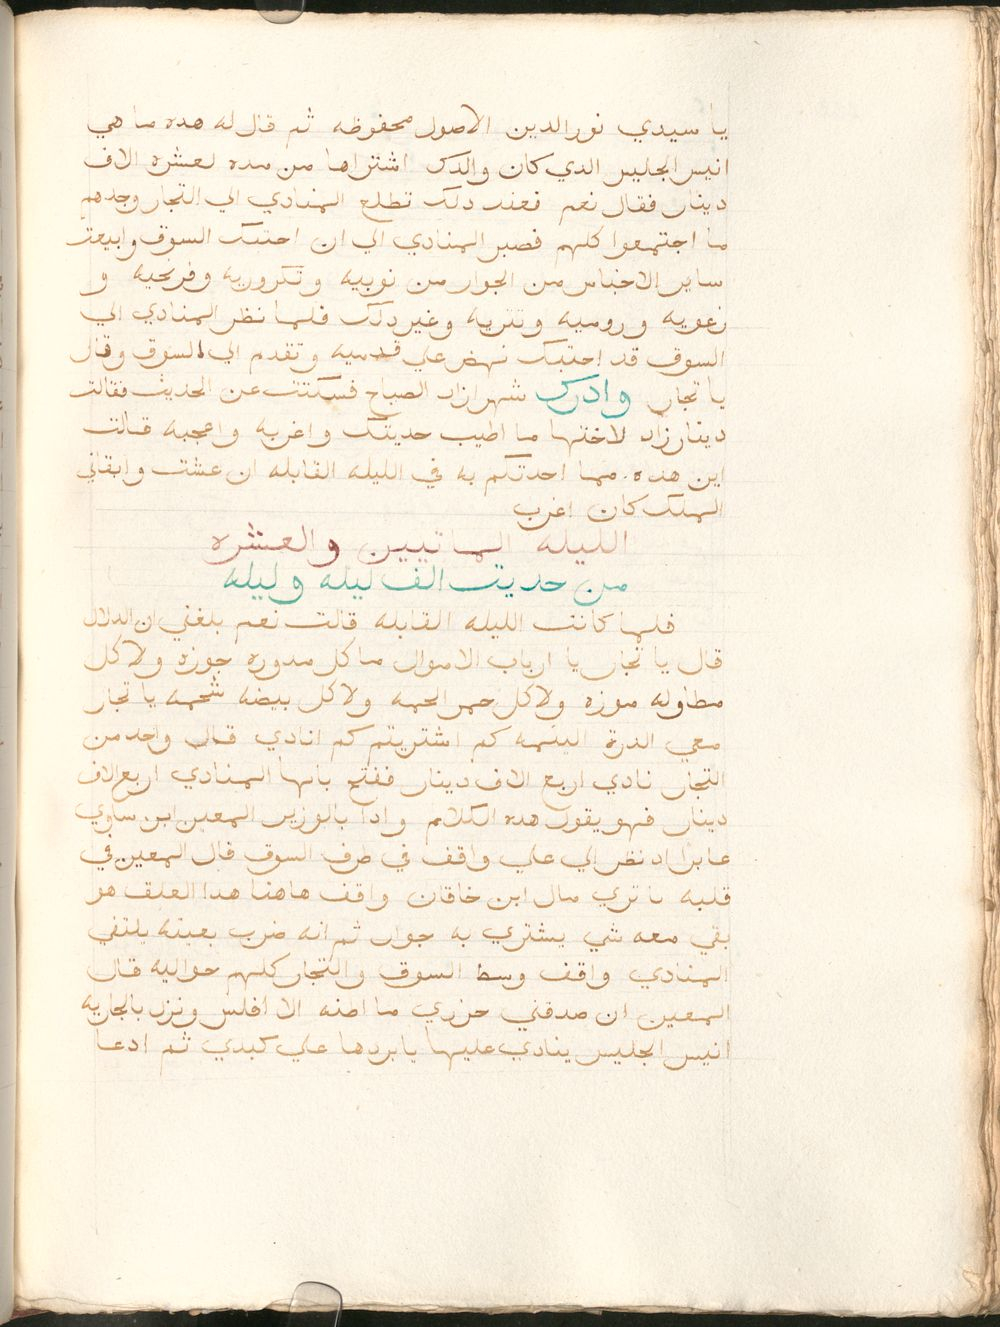 يا سيدي نور الدين الاصول محفوظه ثم قال له هده ما هي
انيس الجليس الدي كان والدك اشتراها من مده لعشره الاف
دينار فقال نعم فعند دلك تطلع المنادي الي التجار وجدهم
ما اجتمعوا كلهم فصبر المنادي الي ان احتبك السوق وابيعت
ساير الاجناس من الجوار من نوبيه وتكروريه وفرنجيه و
زعويه وروميه وتتريه وغير دلك فلما نظر المنادي الي
السوق قد احتبك نهض علي قدميه وتقدم الي السوق وقال
يا تجار وادرك شهرازاد الصباح فسكتت عن الحديث فقالت
دينارزاد لاختها ما اطيب حديتك واغربه واعجبه قالت
اين هده مما احدتكم به في الليله القابله ان عشت وابقاني
الملك كان اغرب
الليله الماتيين والعشره
من حديت الف ليله وليله
فلما كانت الليله القابله قالت نعم بلغني ان الدلال
قال يا تجار يا ارباب الاموال ما كل مدوره جوزه ولا كل
مطاوله موزه ولا كل حمرا لحمه ولا كل بيضه شحمه يا تجار
معي الدرة اليتمه كم اشتريتم كم انادي قال واحد من
التجار نادي اربع الاف دينار ففتح بابها المنادي اربع الاف
دينار فهو يقول هده الكلام وادا بالوزير المعين ابن ساوي
عابرا اد نظر الي علي واقف في طرف السوق قال المعين في
قلبه يا تري مال ابن خاقان واقف هاهنا هدا العلق هو
بقي معه شي يشتري به جوار ثم انه ضرب بعينه يلتقي
المنادي واقف وسط السوق والتجار كلهم حواليه قال
المعين ان صدقني حزري ما اظنه الا افلس ونزل بالجاريه
انيس الجليس ينادي عليها يا بردها علي كبدي ثم ادعا